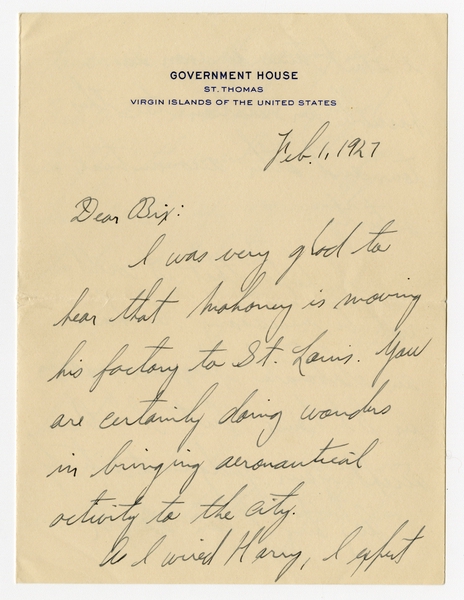 GOVERNMENT HOUSE
ST. THOMAS
VIRGIN ISLANDS OF THE UNITED STATES
Feb. 1, 1927
Dear Bix:
I was very glad to
hear that Mahoney is moving
his factory to St. Louis. You
are certainly doing wonders
in bringing aeronautical
activity to the city.
As I wired Harry, I expect